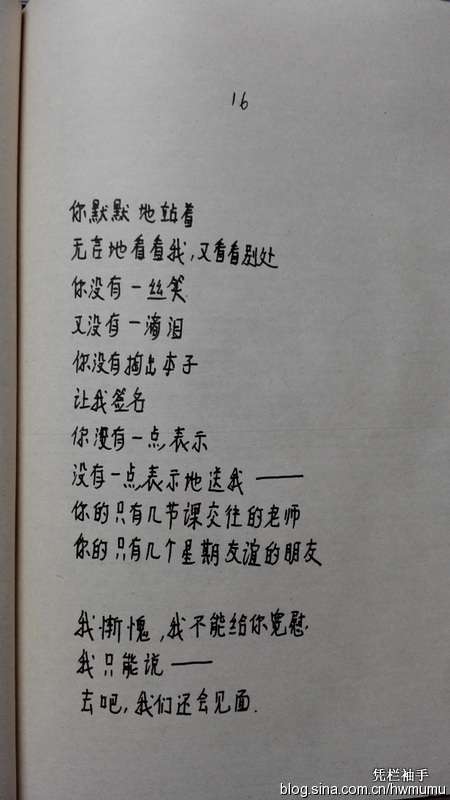 16
你默默地站着
无言地看看我，又看看别处
你没有一丝笑
又没有一滴泪
你没有掏出本子
让我签名
你没有一点表示
没有一点表示地送我——
你的只有几节课交往的老师
你的只有几个星期友谊的朋友
我惭愧，我不能给你宽慰
我只能说——
去吧，我们还会见面.
凭栏袖手
blog.sina.com.cn/hwmumu